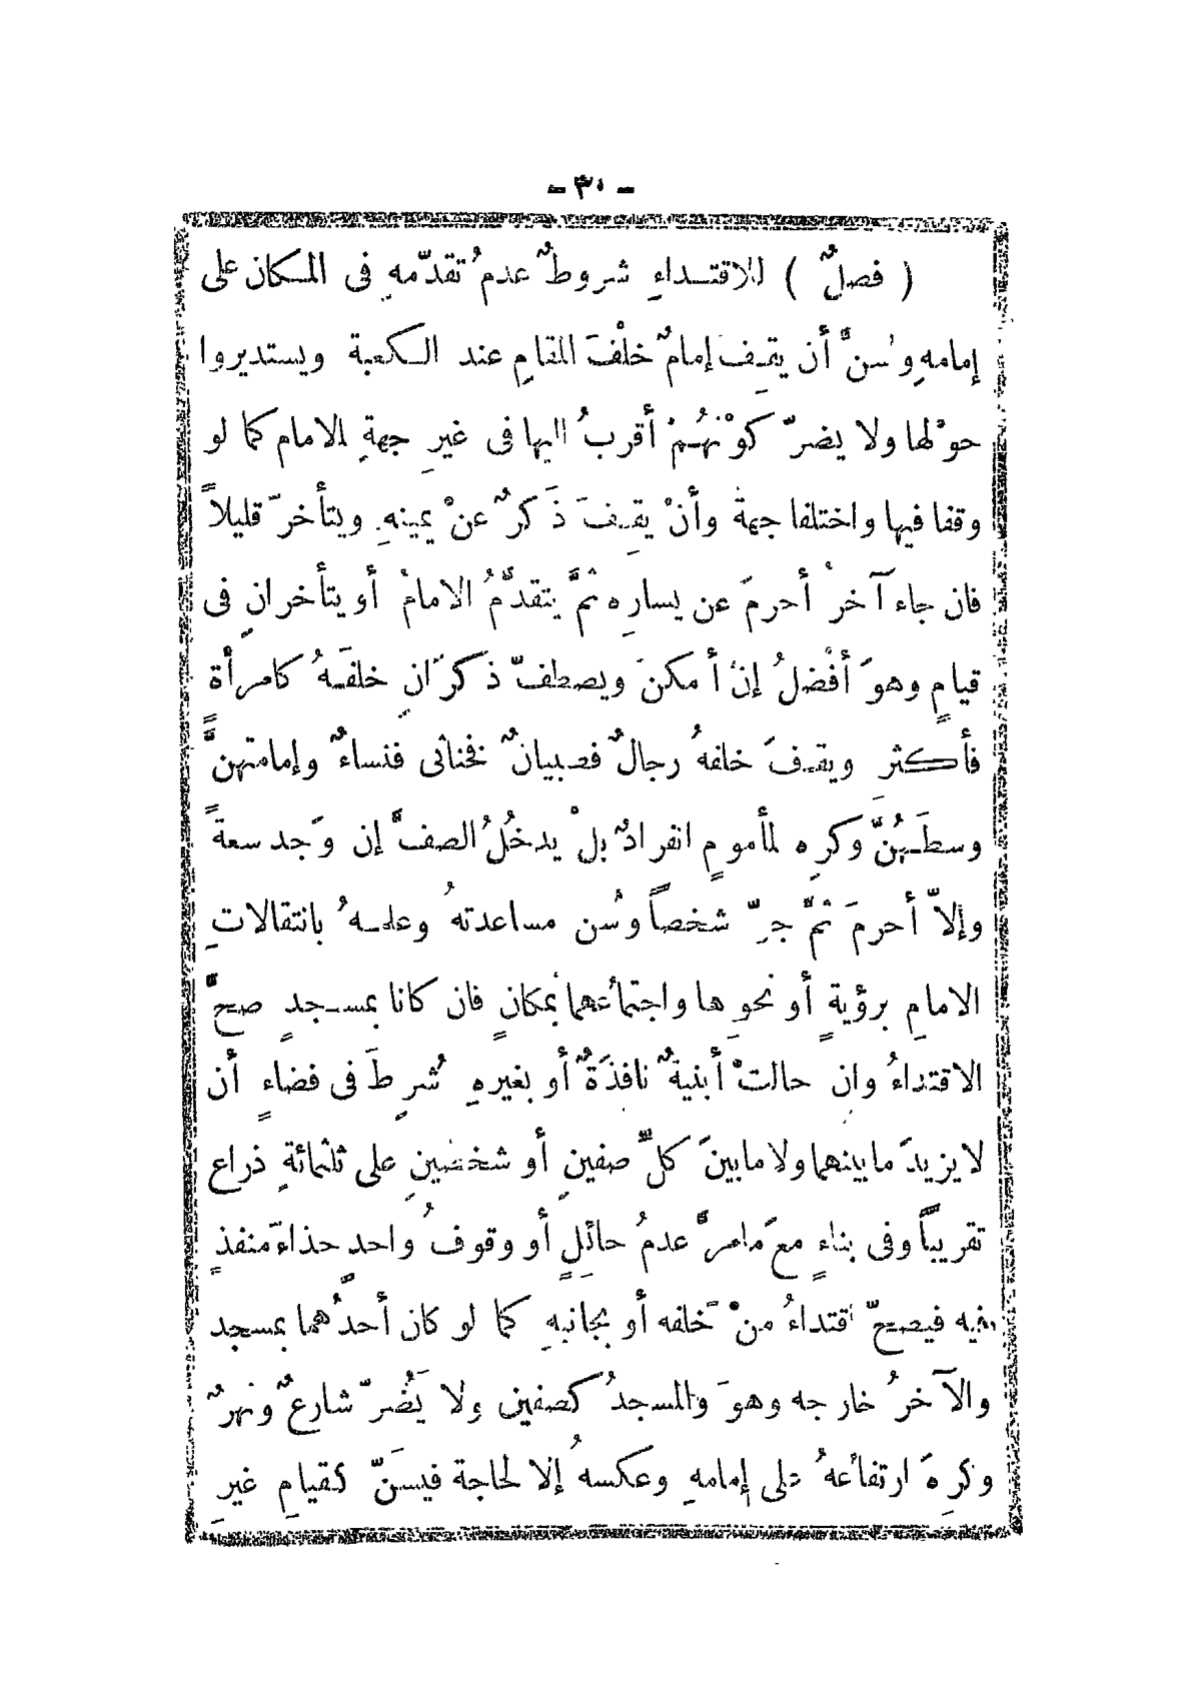 - ٣٠ -
( فصلٌ ) للاقتداءِ شروطٌ عدمُ تقدّمهِ فى المكان على
إمامهِ وسنَّ أن يقِفَ إمامٌ خلْفَ المقامِ عند الكعبة ويستديروا
حوْلها ولا يضرّ كوْنهُمْ أقربُ اليها فى غيرِ جهةِ الامام كما لو
وقفا فيها واختلفا جهةً وأنْ يقِفَ ذَكرٌ عنْ يمينهِ ويتأخرّ قليلاً
فان جاء آخرُ أحرمَ عن يسارِه ثمَّ يتقدَّمُ الامامُ أو يتأخرانِ فى
قيامٍ وهوَ أفْضلُ إنْ أمكنَ ويصطفّ ذكرَانِ خلفَهُ كامرأةٍ
فأكثرِ ويقفَ خلفهُ رجالٌ فصبيانٌ فخناثى فنساءٌ وإمامتهنَّ
وسطَهُنَّ وكرِه لمأمومٍ انفرادٌ بلْ يدخُلُ الصفَّ إن وَجد سعةً
وإلاّ أحرمَ ثمَّ جرِّ شخصاً وسُن مساعدتهُ وعلمهُ بانتقالاتِ
الامامِ برؤيةٍ أو نحوِها واجتماعهما بمكانٍ فان كانا بمسجدٍ صحَّ
الاقتداءُ وإن حالتْ أبنيةٌ نافذَةٌ أو بغيرهِ شُرِطَ فى فضاءٍ أن
لا يزيدَ ما بينهما ولا ما بينَ كلِّ صفينِ أو شخصينِ على ثلثمائةِ ذراع
تقريباً وفى بناءٍ معَ مامرَّ عدمُ حائلٍ أو وقوفُ واحدٍ حذاءَ منفذٍ
فيه فيصحّ اقتداءُ منْ خلفه أو بجانبهِ كما لو كان أحدُهما بمسجدٍ
والآخرُ خارجه وهوَ والمسجدُ كصفين ولا يَضُرّ شارعٌ ونهرٌ
وكرِهَ ارتفاعهُ على إمامهِ وعكسهُ إلا لحاجة فيسَنّ كقيامِ غيرِ